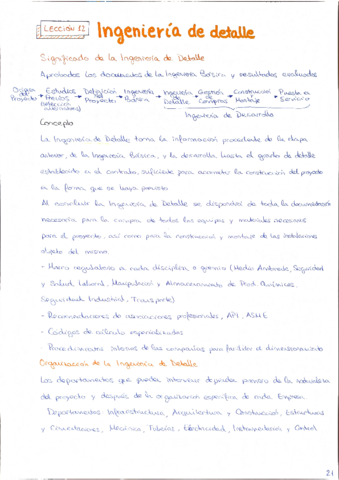 LECCIÓN 12 Ingeniería de detalle
Significado de la Ingeniería de Detalle
Aprobados los documentos de la Ingeniería Básica y resultados evaluados
Origen del Proyecto → Estudios Previos → Definición del Proyecto → Ingeniería Básica → Ingeniería de Detalle → Gestión de Compras → Construcción Montaje → Puesta en Servicio
Ingeniería de Desarrollo
Concepto
La Ingeniería de Detalle toma la información procedente de la etapa
anterior, de la Ingeniería Básica, y la desarrolla hasta el grado de detalle
establecido en el contrato, suficiente para acometer la construcción del proyecto
en la forma que se haya previsto
Al concluir la Ingeniería de Detalle se dispondrá de toda la documentación
necesaria para la compra de todos los equipos y materiales necesarios
para el proyecto, así como para la construcción y montaje de las instalaciones
objeto del mismo:
- Marco regulatorio a cada disciplina o gremio (Medio Ambiente, Seguridad
y Salud Laboral, Manipulación y Almacenamiento de Prod. Químicos,
Seguridad Industrial, Transporte)
- Recomendaciones de asociaciones profesionales, API, ASME
- Códigos de cálculo especializados
- Procedimientos internos de las compañías para facilitar el dimensionamiento
Organización de la Ingeniería de Detalle
Los departamentos que pueden intervenir dependen primero de la naturaleza
del proyecto y después de la organización específica de cada Empresa
Departamentos Infraestructura, Arquitectura y Construcción, Estructuras
y Cimentaciones, Mecánica, Tuberías, Electricidad, Instrumentación y Control
21